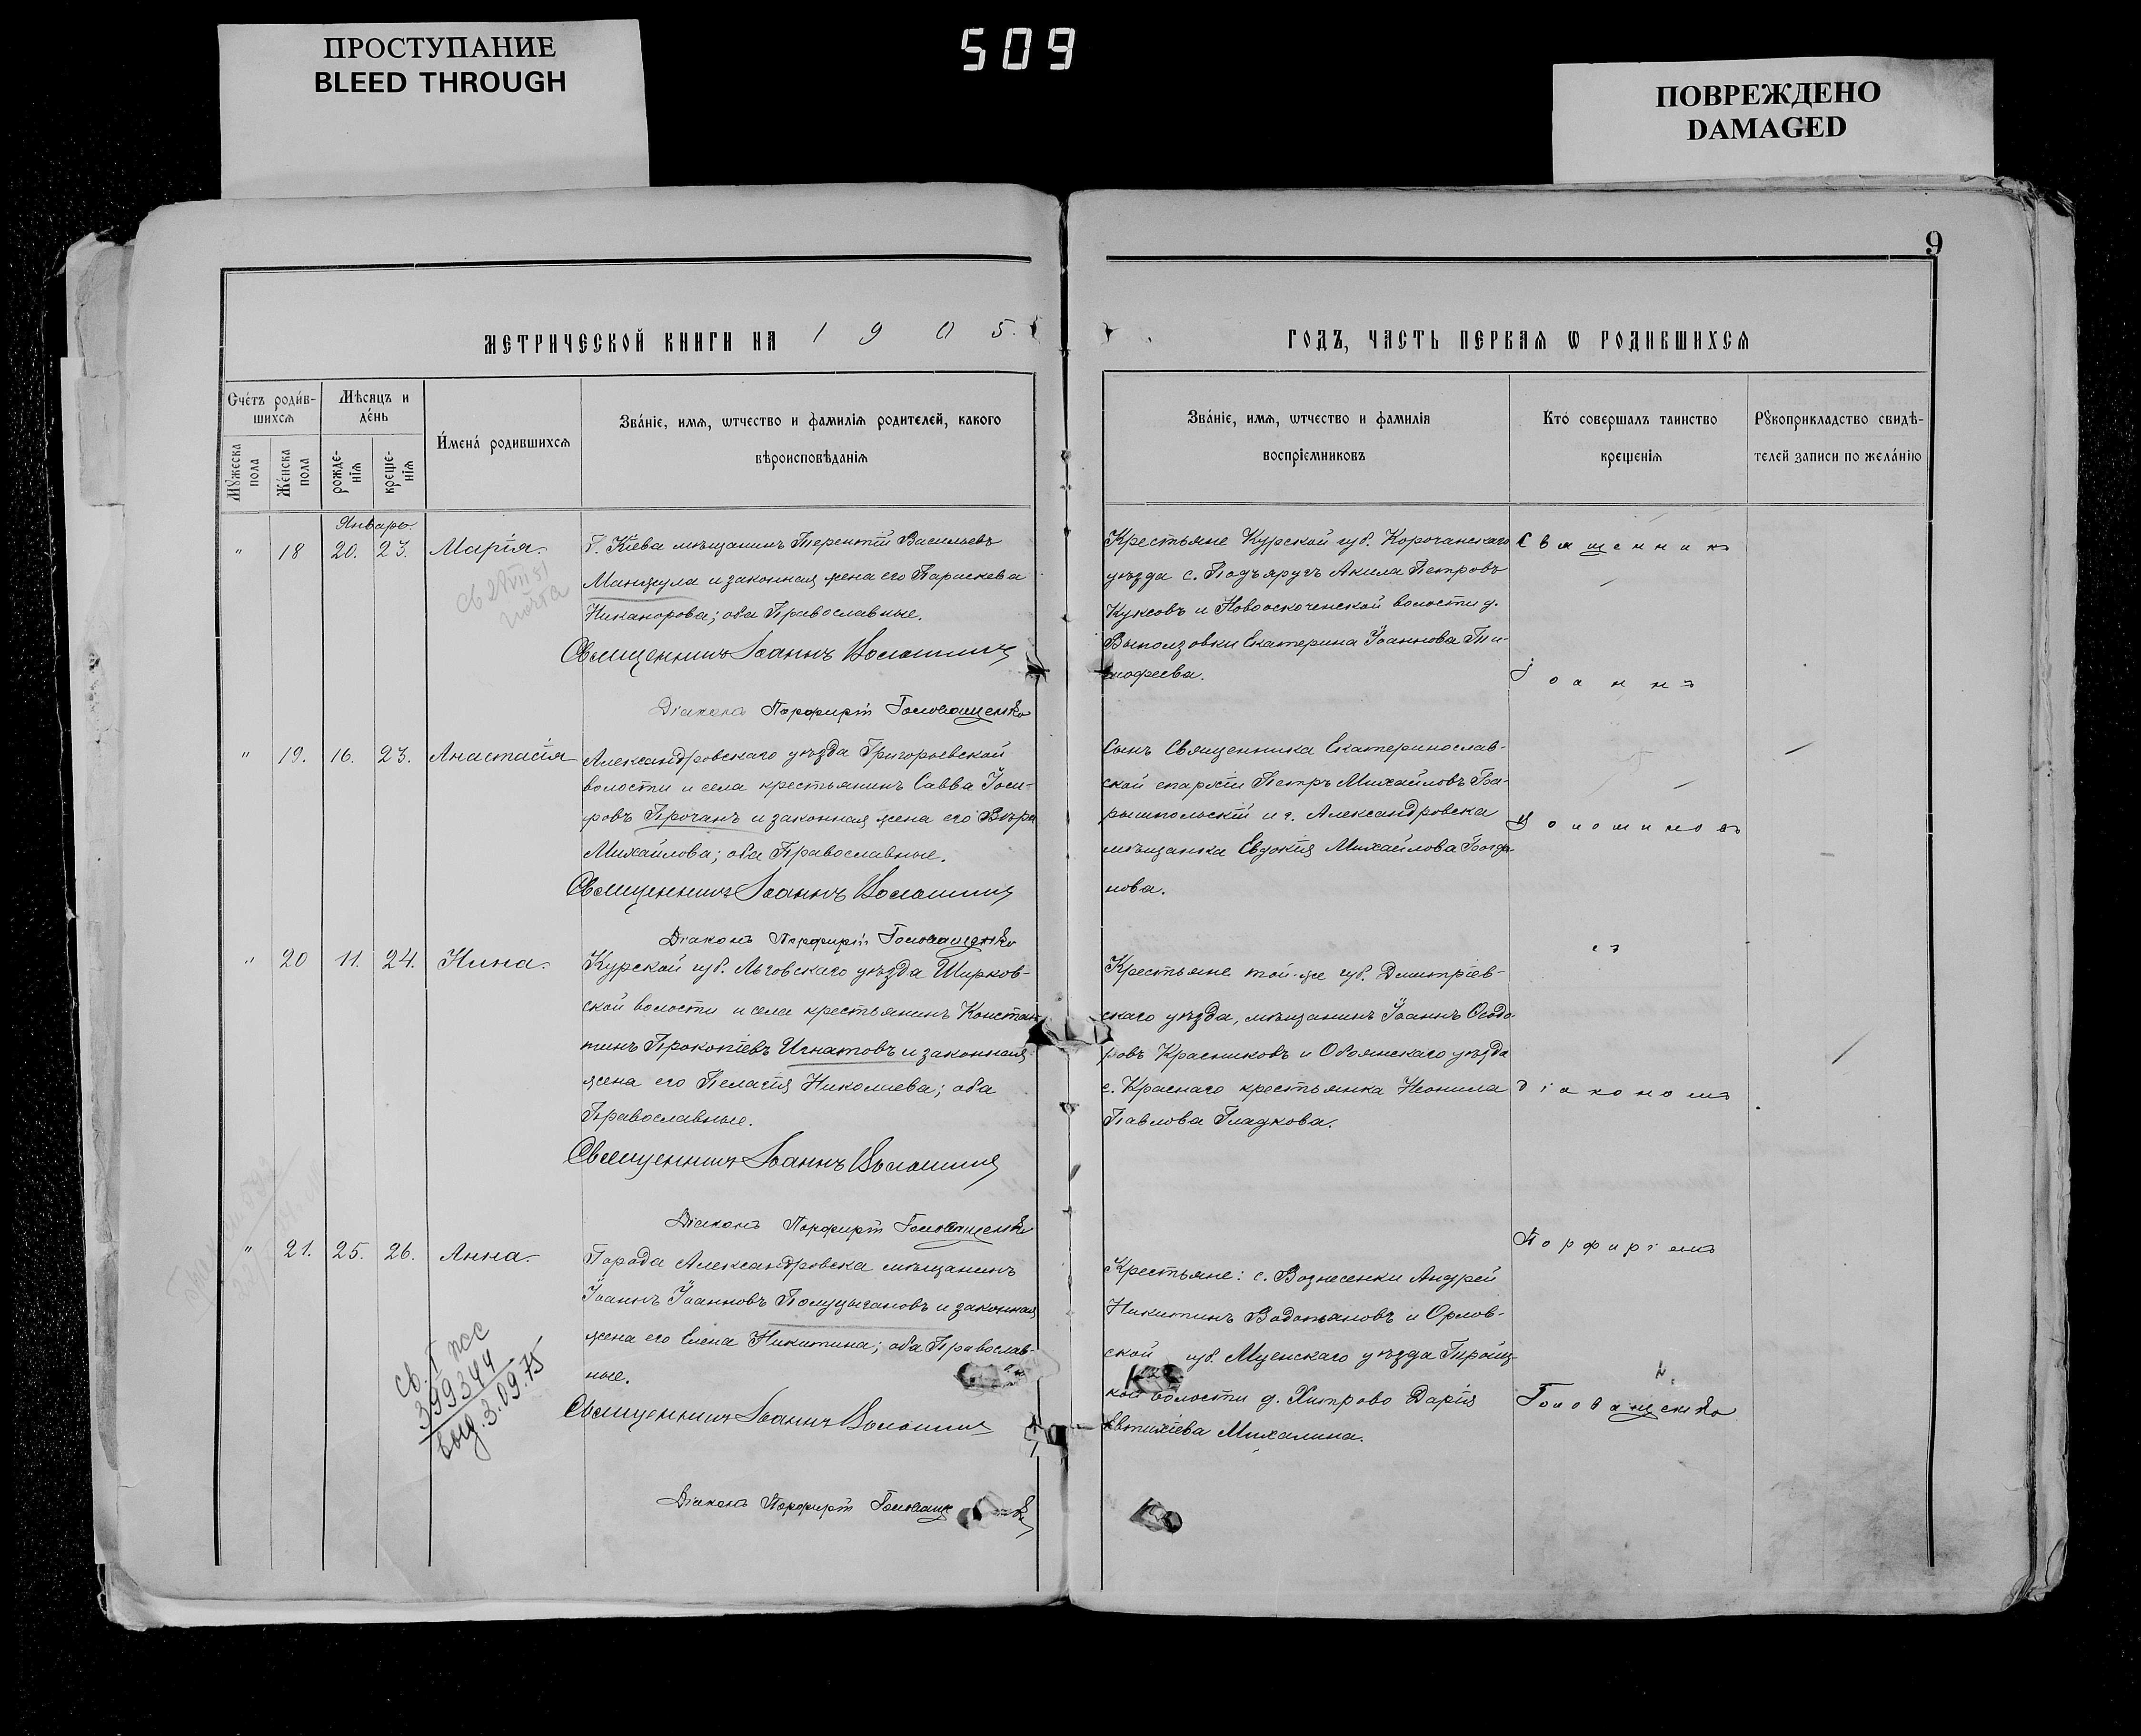 ПРОСТУПАНИЕ
BLEED THROUGH
509
ПОВРЕЖДЕНО
DAMAGED
9
МЕТРИЧЕСКОЙ КНИГИ НА 1905.
ГОДЪ, ЧАСТЬ ПЕРВАѦ Ѡ РОДИВШИХСѦ
Счéтъ роди́в-
шихсѧ
Мѣсяцъ и
дéнь
Мꙋжеска
пола
Жéнска
пола
рожде-
нїѧ
креще-
нїѧ
И́менá родившихсѧ
Звáнїе, имѧ, ѿтчество и фамилїѧ родителей, какого
вѣроисповѣданїѧ
Звáнїе, имѧ, ѿтчество и фамилїѧ
воспрїемниковъ
Ктó совершалъ таинство
крещенїѧ
Рꙋкоприкладство свидѣ-
телей записи по желáнїю
Январь.
" 18 20. 23. Марія.
Г. Кіева мѣщанинъ Терентій Васильевъ
Манзула и законная жена его Параскева
Никанорова; оба Православные.
Священникъ Іоаннъ Волошинъ
Діаконъ Порфирій Головащенко
Крестьяне Курской губ. Корочанскаго
уѣзда с. Подъяругъ Акила Петровъ
Куксовъ и Новооскоченской волости д.
Выползовки Екатерина Іоаннова Ти-
мофеева.
Священникъ
Іоаннъ
" 19. 16. 23. Анастасія
Александровскаго уѣзда Григорьевской
волости и села крестьянинъ Савва Іоси-
ровъ Прочанъ и законная жена его Вѣра
Михайлова; оба Православные.
Священникъ Іоаннъ Волошинъ
Діаконъ Порфирій Головащенко
Сынъ Священника Екатеринослав-
ской епархіи Петръ Михайловъ Ба-
рышпольскій и г. Александровска
мѣщанка Евдокія Михайлова Богда-
нова.
съ
" 20 11. 24. Нина.
Курской губ. Льговскаго уѣзда Ширков-
ской волости и села крестьянинъ Констан-
тинъ Прокопіевъ Игнатовъ и законная
жена его Пелагія Николаева; оба
Православные.
Священникъ Іоаннъ Волошинъ
Діаконъ Порфирій Головащенко
Крестьяне той-же губ. Дмитріев-
скаго уѣзда, мѣщанинъ Іоаннъ Ѳеодо-
ровъ Красниковъ и Обоянскаго уѣзда
с. Краснаго крестьянка Неонила
Павлова Гладкова.
діакономъ
Порфиріемъ
" 21. 25. 26. Анна.
Города Александровска мѣщанинъ
Іоаннъ Іоанновъ Полуцыгановъ и законная
жена его Елена Никитина; оба Православ-
ные.
Священникъ Іоаннъ Волошинъ
Діаконъ Порфирій
Крестьяне: с. Вознесенки Андрей
Никитинъ Водопьяновъ и Орлов-
ской губ. Мценскаго уѣзда Троиц-
кой волости д. Хитрово Дарія
Евтихіева Михалина.
Головащенко
399344
выд. 3.09.75